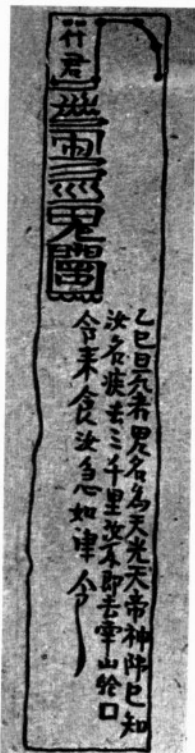 符君
乙巳旦死者鬼名為天光天帝神師已知
汝名疾去三千里汝不即去山給口
令来食汝急如律令